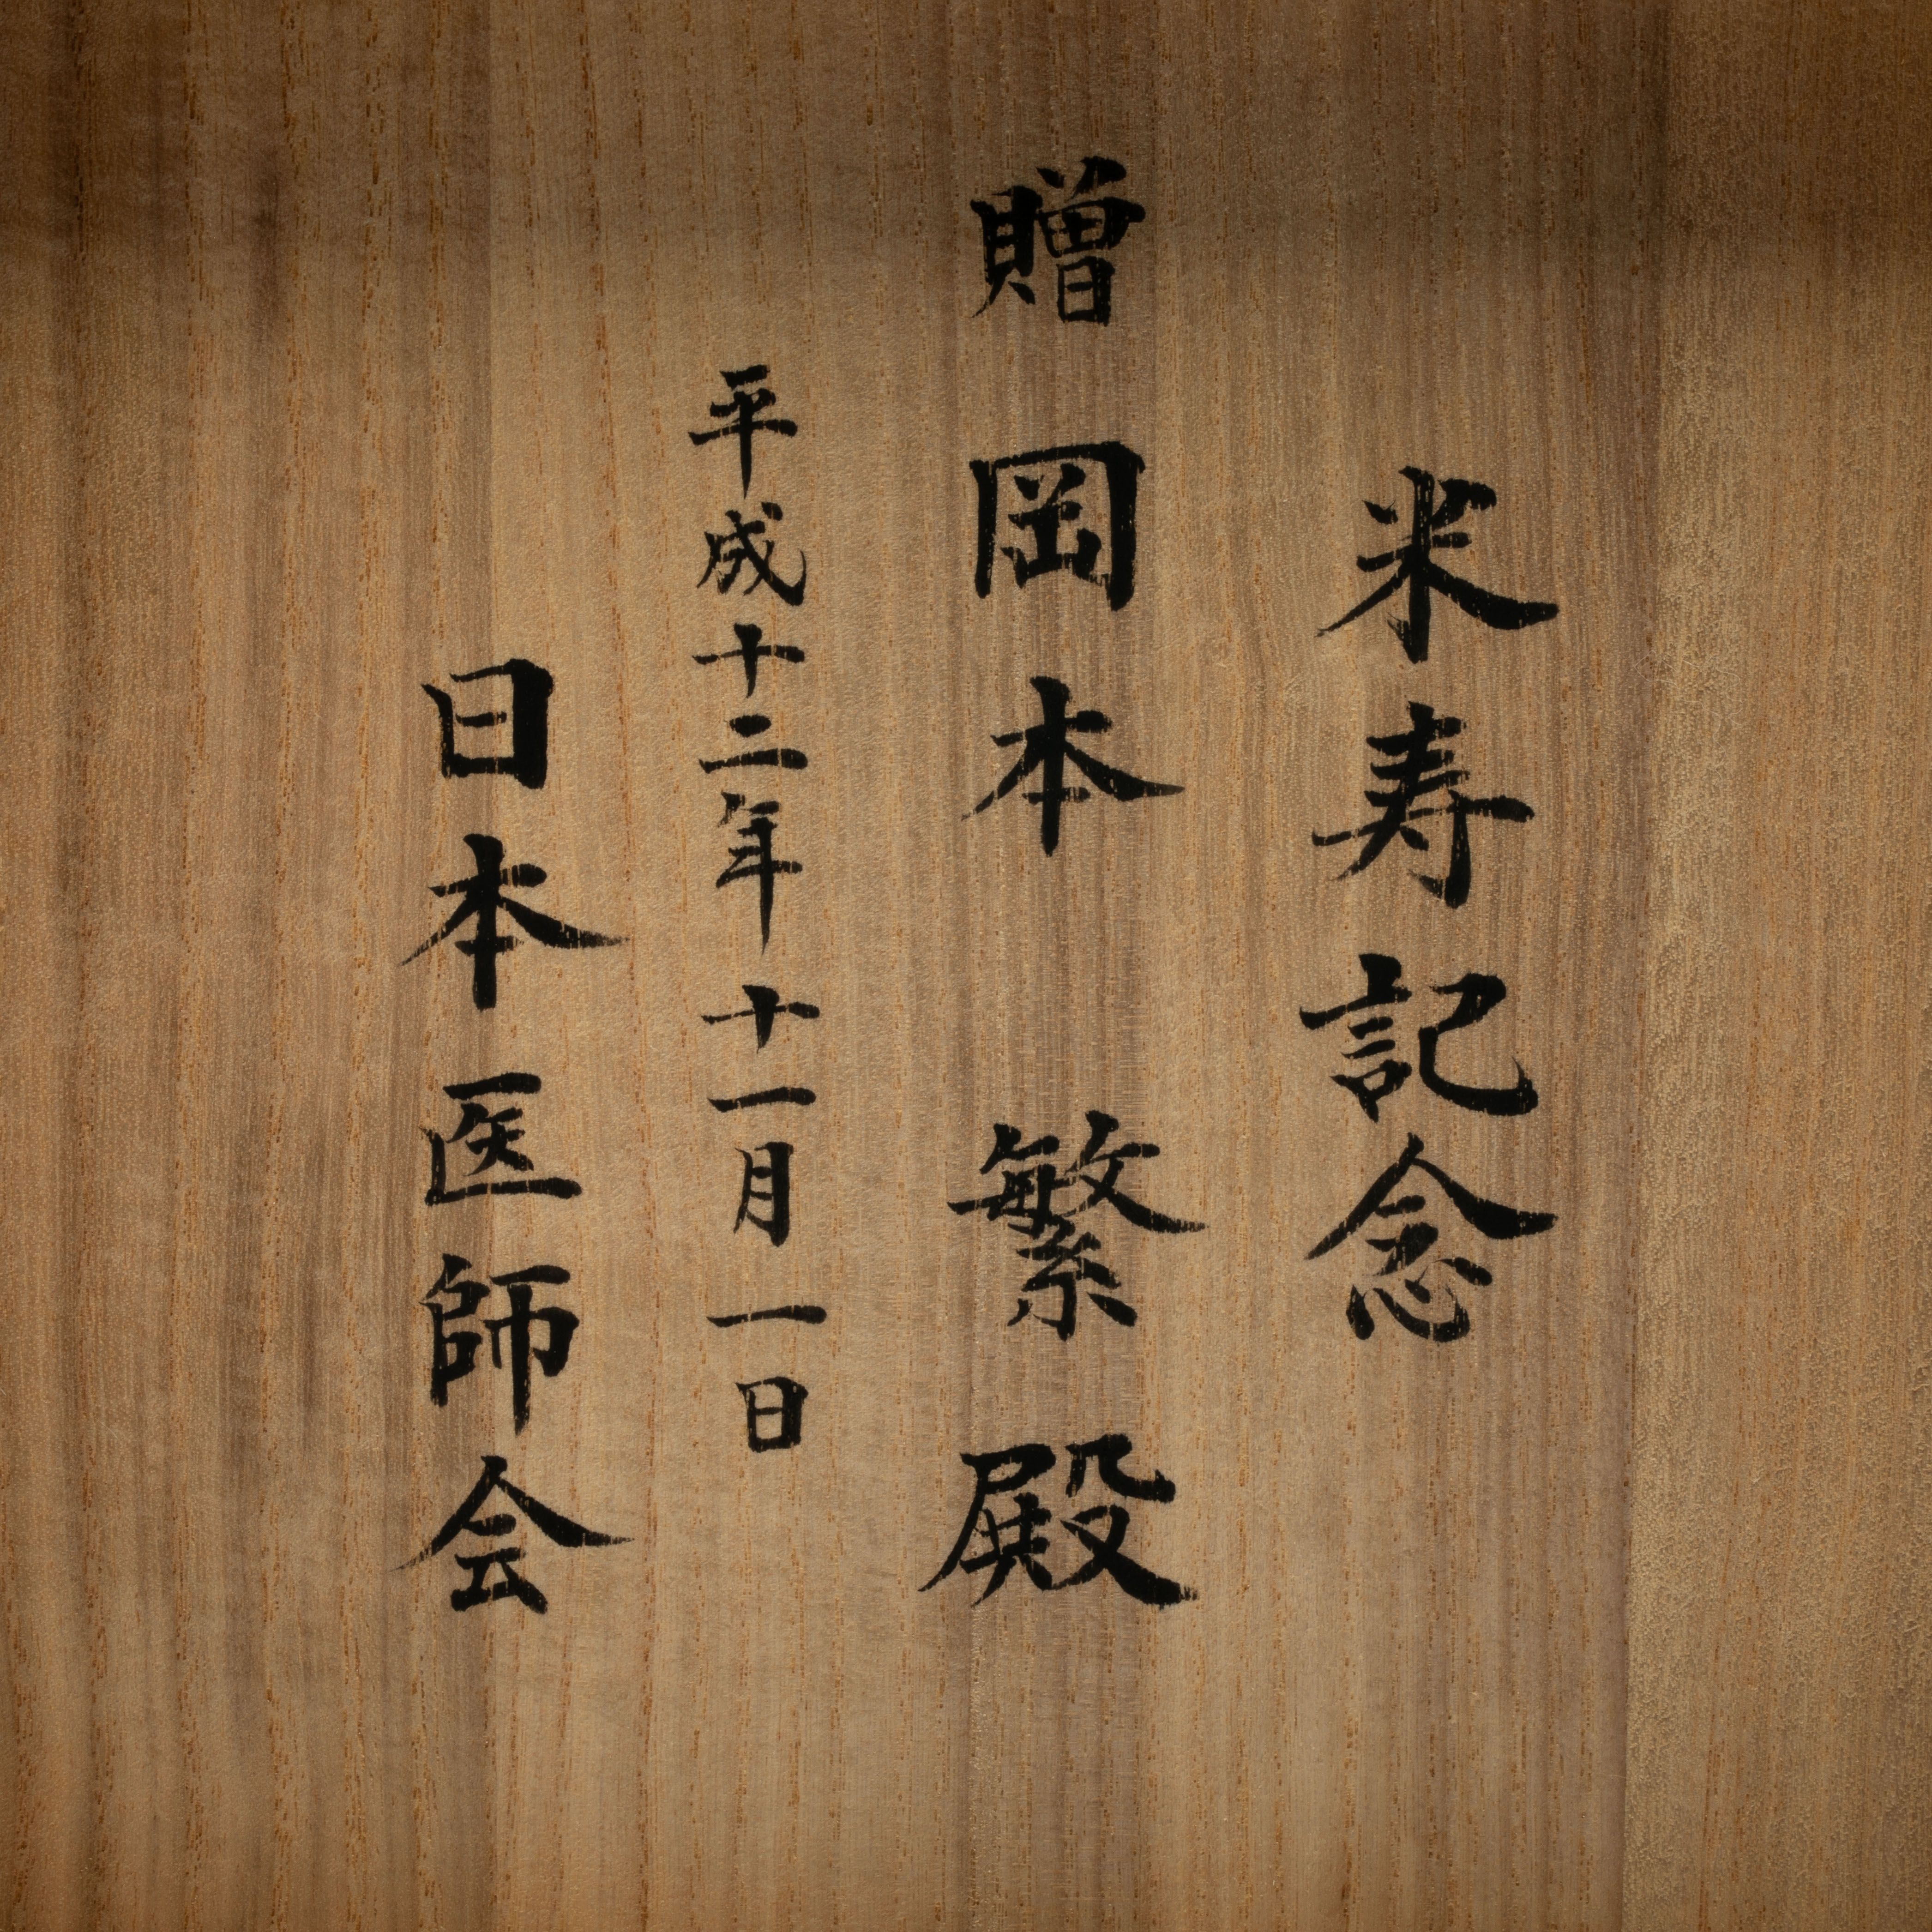 米寿記念
贈 岡本 繁 殿
平成十二年十一月一日
日本医師会